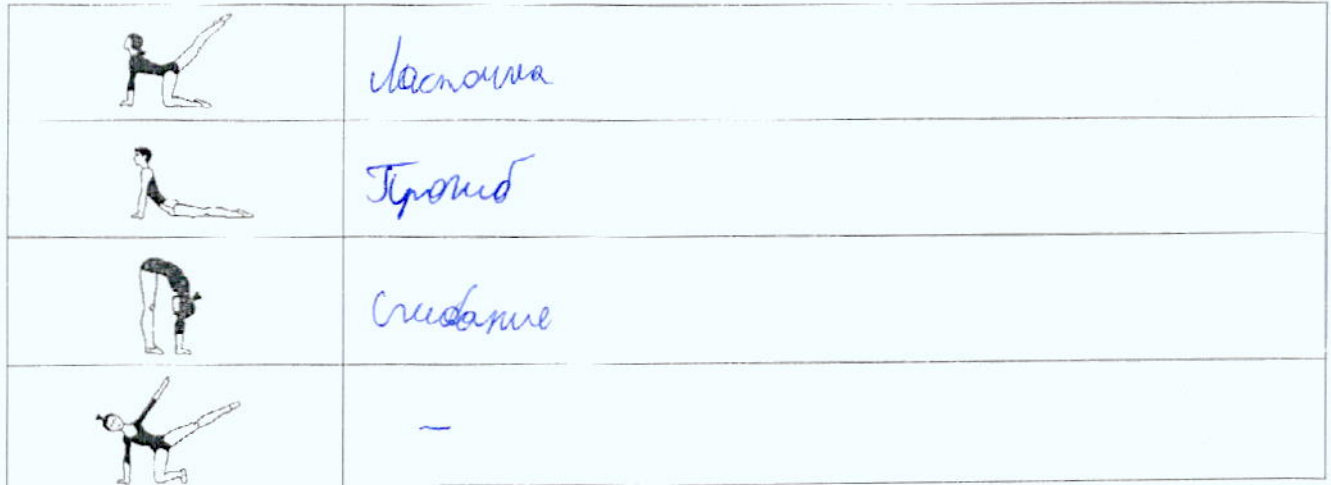 Ласточка
Прогиб
Сгибание
–